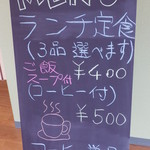 MENU
ランチ定食
(3品 選べます)
ご飯
スープ付 ¥400
(コーヒー付)
¥500